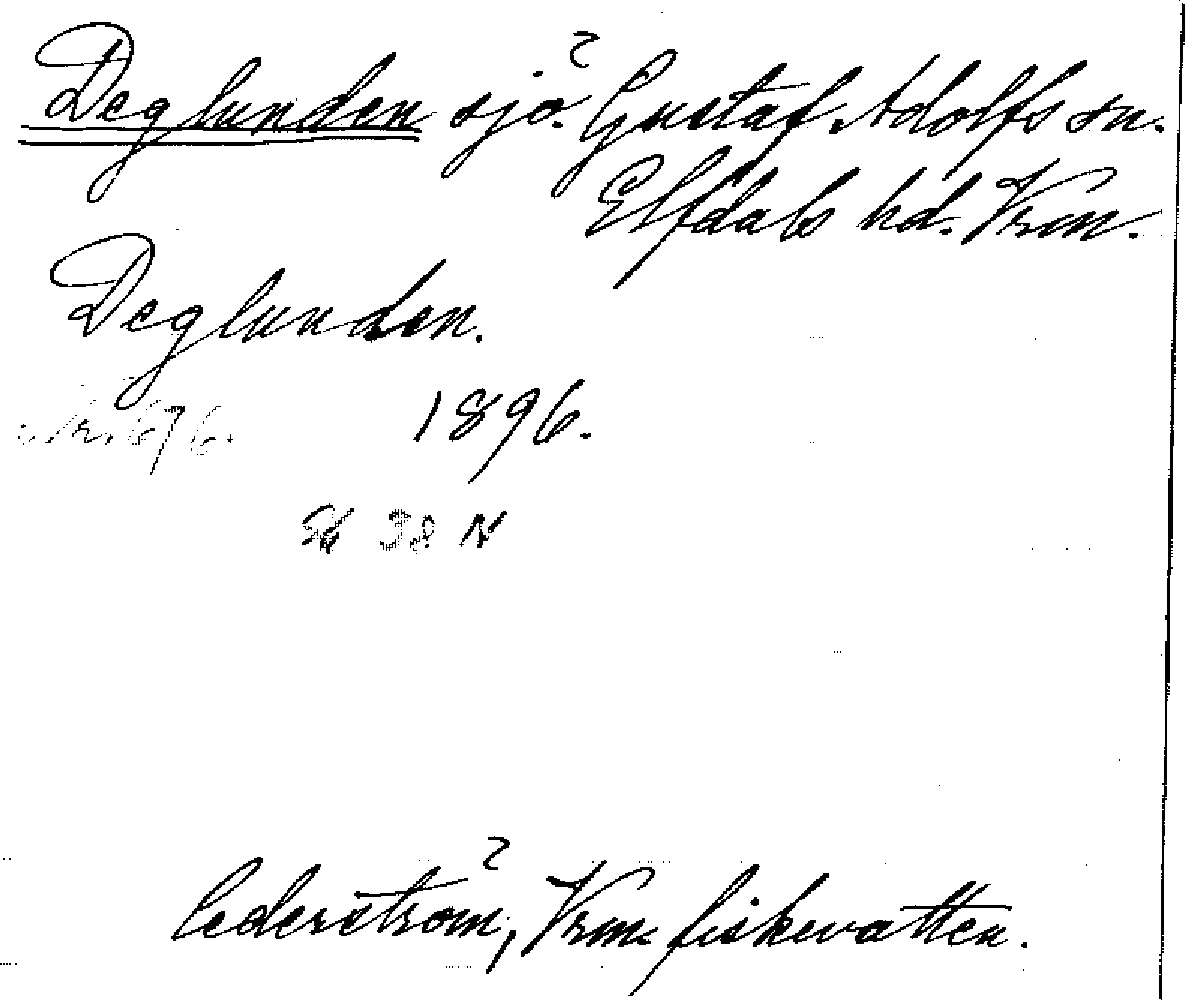 Deglunden sjö. Gustaf Adolfs sn.
Elfdals hd. Vrm.
Deglunden.
Nr. 676. 1896.
38 N
Cederström, Vrm. fiskevatten.